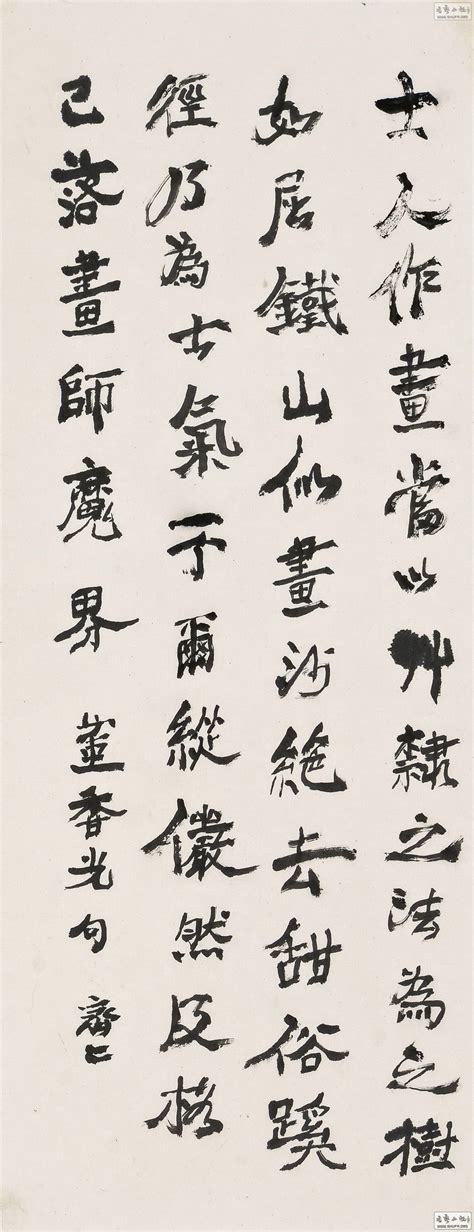 士人作畫當以艸隸之法為之樹
如屈鐵山似畫沙絕去甜俗蹊
徑乃為士氣不爾縱儼然及格
已落畫師魔界 董香光句